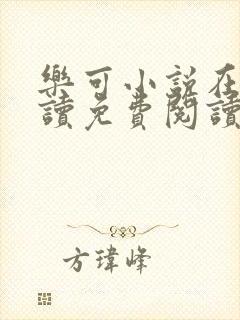 樂可小說在
讀免費閱讀
方瑋峰